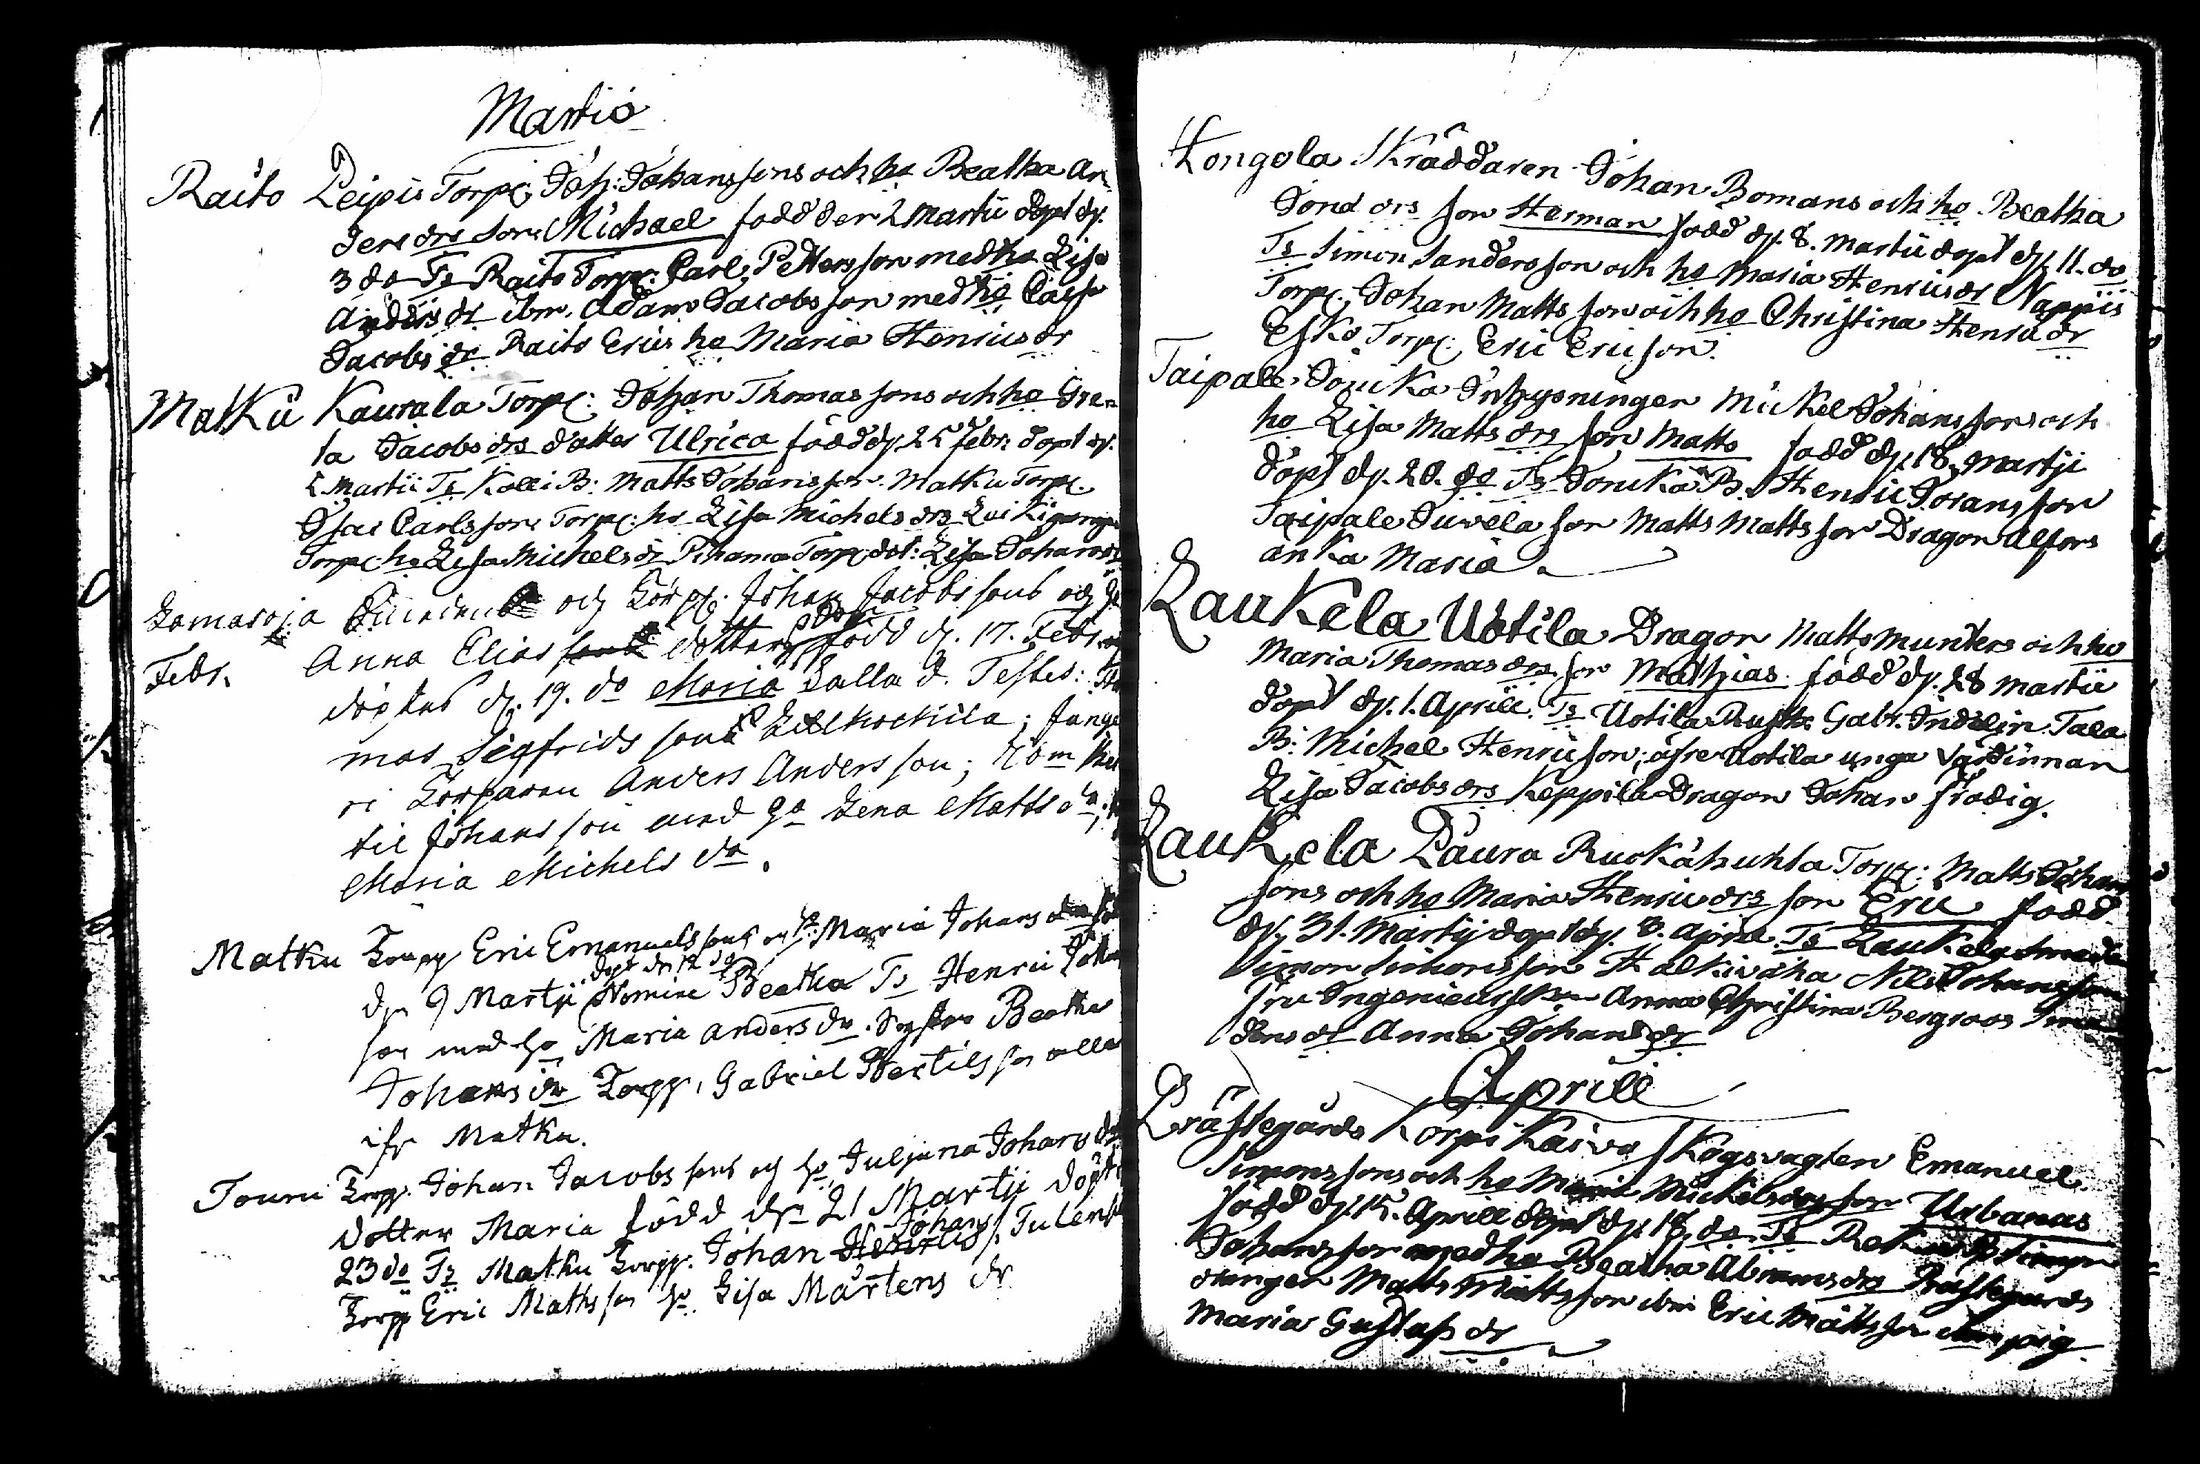 Martio
Raito Leipis Torp: Joh: Johanssons och ho Beatha An-
ders drs son Michael född den 2 Martii döpt dy.
3 do Ts Raito Torp: Carl Pettersson med ho Lisa
Anders dr ibm. Adam Jacobsson med ho Caisa
Jacobs dr Raito Erics ho Maria Henrics dr
Matku Kaurala Torp: Johan Thomassons och ho Gre-
ta Jacobs drs dotter Ulrica född dy. 25 febr. döpt dy.
2 Martii Ts Kolli B: Matts Johansson Matku Torp:
Isac Carlsson Torp: ho Lisa Michels drs
Torp: ho Lisa Michels dr Torp dot: Lisa Johans
och Torp: Johan Jacobssons och
Febr. Anna Elias dotter född d. 17. Febr.
döptes d. 19. do Maria kalla d. Testes:
mas Sigfrids son
ri Torparen Anders Andersson;
til Johansson med ho Lena Matts dr,
Maria Michels dr.
Matku Torpp Eric Emanuelssons och ho Maria Johans dr
döpt dn 12 do
dn 9 Martji Nomine Beatha Ts Henric Johan
son med ho Maria Anders dr. Beatha
Johans dr Torpp, Gabriel Bertilsson alla
ifr Matku.
Touru Torpp. Johan Jacobssons och ho Juliana Johans dr
dotter Maria född dn 21 Martji döpt
Johans
23 do Ts Matku Torpp. Johan Henrics
Torpp Eric Mathsson ho Lisa Mårtens dr
Kongola Skräddaren Johan Bomans och ho Beatha
Jord drs son Herman född dy. 8. Martii döpt dy. 11. do
Ts Simon Sandersson och ho Maria Henrics dr Nappis
Torp: Johan Mattsson och ho Christina Henric dr
Esko Torp: Eric Ericson.
Taipale Jonika Inhysningen Mickel Johanssons och
ho Lisa Matts drs son Matts född dy. 18 Martji
döpt dy. 20. do Ts Jonika B. Henric Joransson
Taipale Juvela son Matts Mattsson Dragon Alfors
anka Maria
Laukela Uotila Dragon Matts Munters och ho
Maria Thomas drs son Mathias född dy. 28 Martii
döpt dy. 1. Aprill. Ts Uotila Rusth: Gabr. Indelin. Tala
B: Michel Henricson; öfre Uotila unga värdinnan
Lisa Jacobs drs Keppila Dragon Johan Frodig.
Laukela Laura Ruokahuhta Torp: Matts Johans
sons och ho Maria Henric drs son Eric född
dy. 31. Martij döpt dy. 3. April Ts Laukela
Simon Simonsson Halkivaha Nils Johansson
Fru Anna Christina Bergroos
dens dr Anna Johans dr
Aprill
Prästegårds Korpi Kaivo Skogsvagten Emanuel
Simonssons och ho Maria Mickels drs son Urbanus
född dy. 15. Aprill döpt dy. 18 do Ts
Johansson med ho Beatha Abrams drs Prästegårds
drängen Matts Mattsson ibm Eric Mattsson pig
Maria Gustafs dr